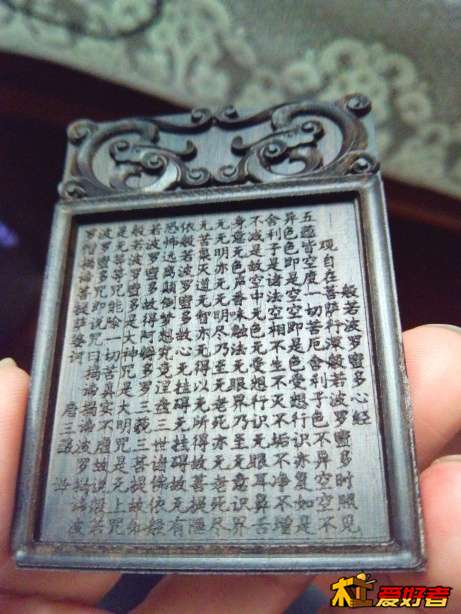 般若波罗蜜多心经
观自在菩萨行深般若波罗蜜多时照见
五蕴皆空度一切苦厄舍利子色不异空空不
异色色即是空空即是色受想行识亦复如是
舍利子是诸法空相不生不灭不垢不净不增
不减是故空中无色无受想行识无眼耳鼻舌
身意无色声香味触法无眼界乃至无意识界
无无明亦无无明尽乃至无老死亦无老死尽
无苦集灭道无智亦无得以无所得故菩提
依般若波罗蜜多故心无挂碍无挂碍故无有
恐怖远离颠倒梦想究竟涅盘三世诸佛依般
若波罗蜜多故得阿耨多罗三藐三菩提故知
般若波罗蜜多是大神咒是大明咒是无上咒
是无等等咒能除一切苦真实不虚故说般若
波罗蜜多咒即说咒曰揭谛揭谛波罗揭谛波
罗僧揭谛菩提萨婆诃
唐三藏
木工爱好者